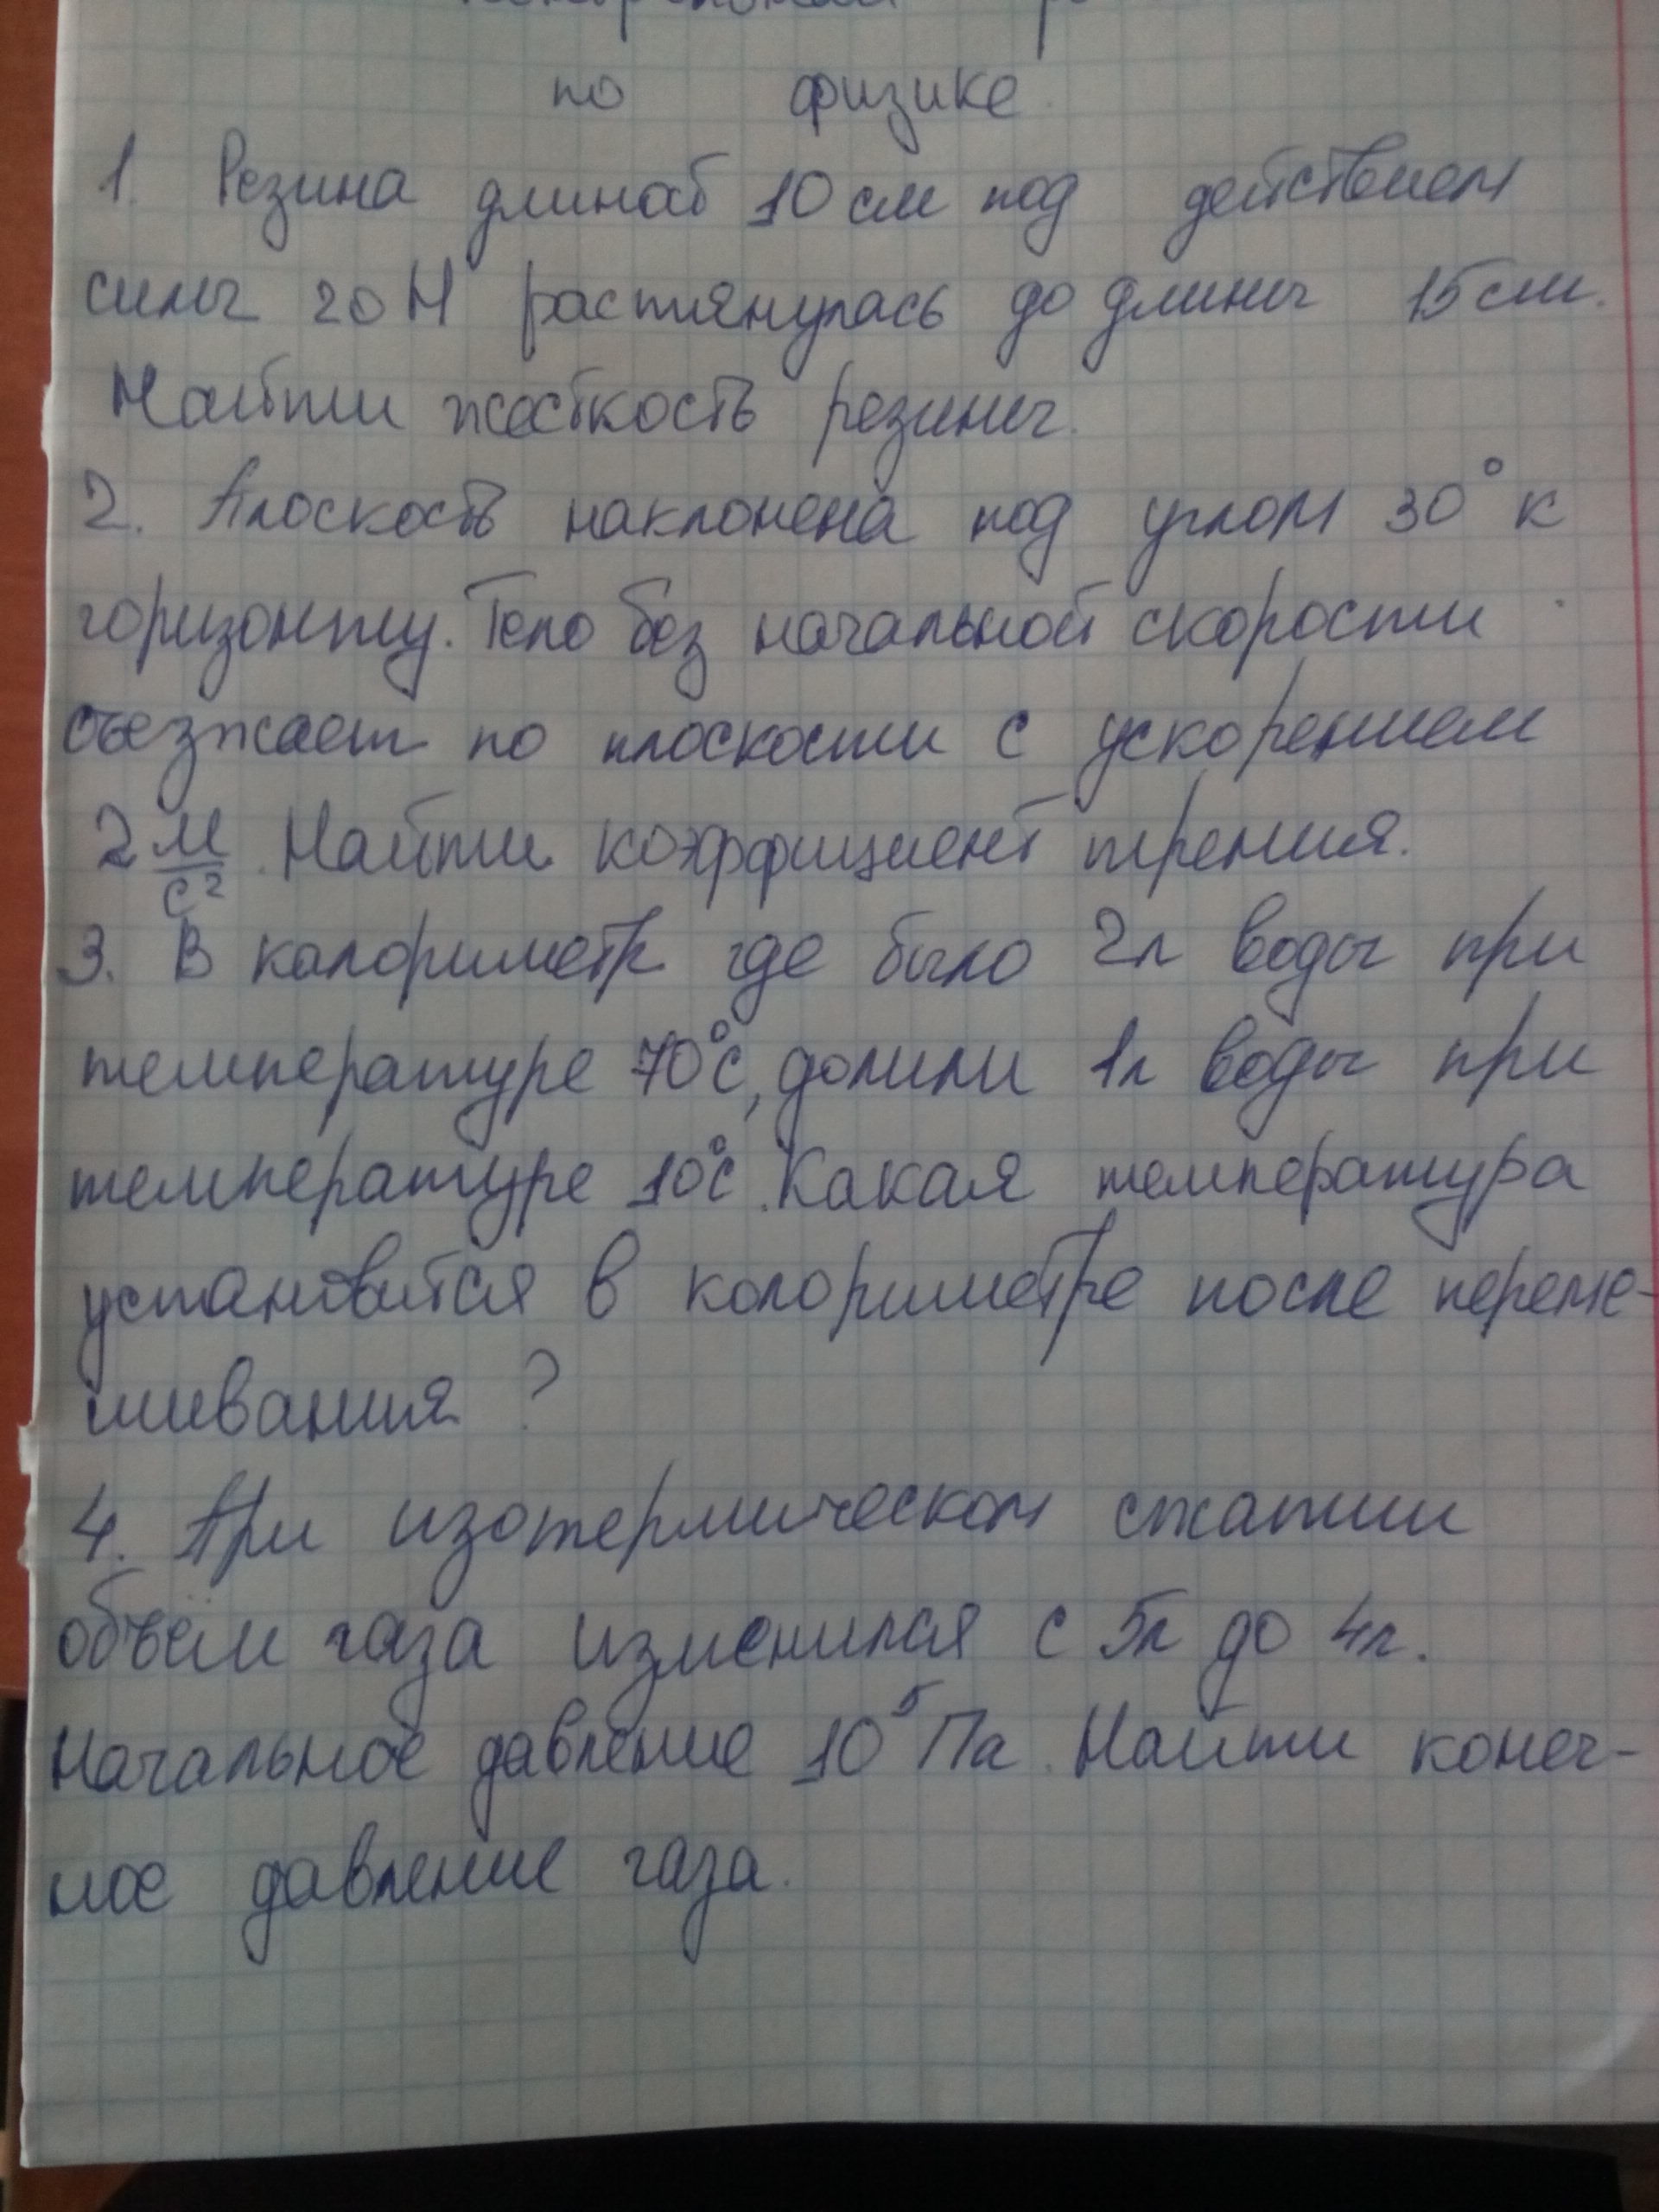 по физике
1. Резина длиной 10 см под действием
силы 20 Н растянулась до длины 15 см.
Найти жесткость резины.
2. Плоскость наклонена под углом 30° к
горизонту. Тело без начальной скорости
съезжает по плоскости с ускорением
2 м/с². Найти коэффициент трения.
3. В калориметр где было 2л воды при
температуре 70°С, долили 1л воды при
температуре 10°С. Какая температура
установится в колориметре после переме-
шивания ?
4. При изотермическом сжатии
объём газа изменился с 5л до 4л.
Начальное давление 10⁵ Па. Найти конеч-
ное давление газа.